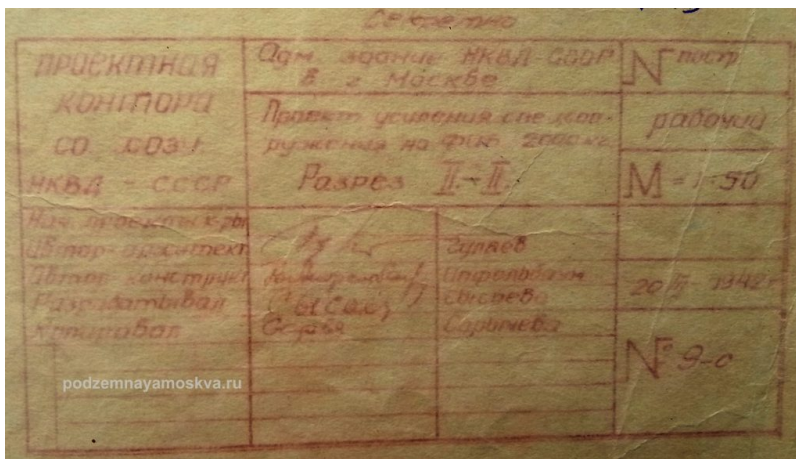 Секретно
ПРОЕКТНАЯ
КОНТОРА
СО ХОЗУ
НКВД - СССР
Адм. здание НКВД СССР
в г. Москве
Проект усиления спецсоо-
ружения на ФАБ 2000 кг.
Разрез II-II
N постр
рабочий
М-1:50
Нач. проектн. к-ры
Автор-архитект
Гуляев
Автор конструк
Апфельбаум
Разрабатывал
Сысоева
Копировал
Сарычева
1942 г
№ 9-с
podzemnayamoskva.ru